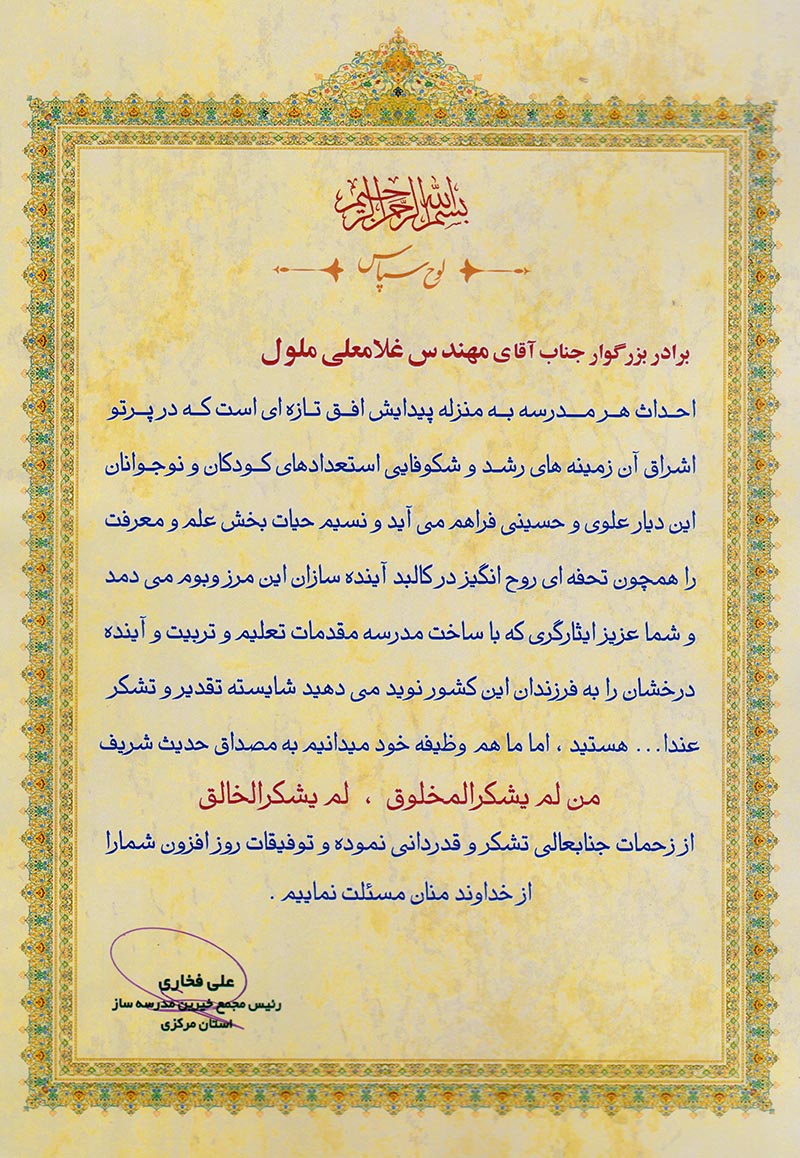 بسم الله الرحمن الرحیم
لوح سپاس
برادر بزرگوار جناب آقای مهندس غلامعلی ملول
احداث هر مدرسه به منزله پیدایش افق تازه ای است که در پرتو
اشراق آن زمینه های رشد و شکوفایی استعدادهای کودکان و نوجوانان
این دیار علوی و حسینی فراهم می آید و نسیم حیات بخش علم و معرفت
را همچون تحفه ای روح انگیز در کالبد آینده سازان این مرز وبوم می دمد
و شما عزیز ایثارگری که با ساخت مدرسه مقدمات تعلیم و تربیت و آینده
درخشان را به فرزندان این کشور نوید می دهید شایسته تقدیر و تشکر
عندا... هستید ، اما ما هم وظیفه خود میدانیم به مصداق حدیث شریف
من لم یشکرالمخلوق ، لم یشکرالخالق
از زحمات جنابعالی تشکر و قدردانی نموده و توفیقات روز افزون شمارا
از خداوند منان مسئلت نماییم .
علی فخاری
رئیس مجمع خیرین مدرسه ساز
استان مرکزی